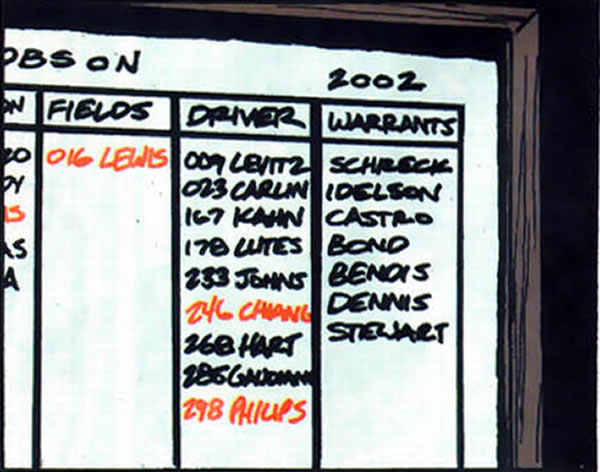 OBSON
2002
ON FIELDS DRIVER WARRANTS
016 LEWIS 009 LEVITZ SCHRECK
023 CARLIN IDELSON
167 KAHN CASTRO
178 LUTES BOND
233 JOHNS BENOIS
246 CHIANG DENNIS
268 HART STEWART
298 PHILIPS